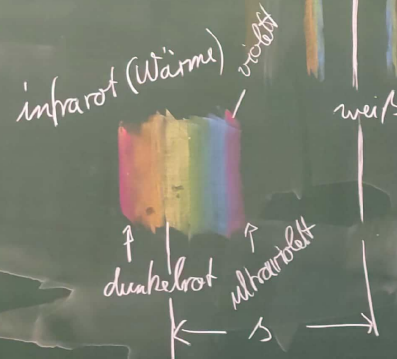 infrarot (Wärme)
violett
weiß
dunkelrot
ultraviolett
s